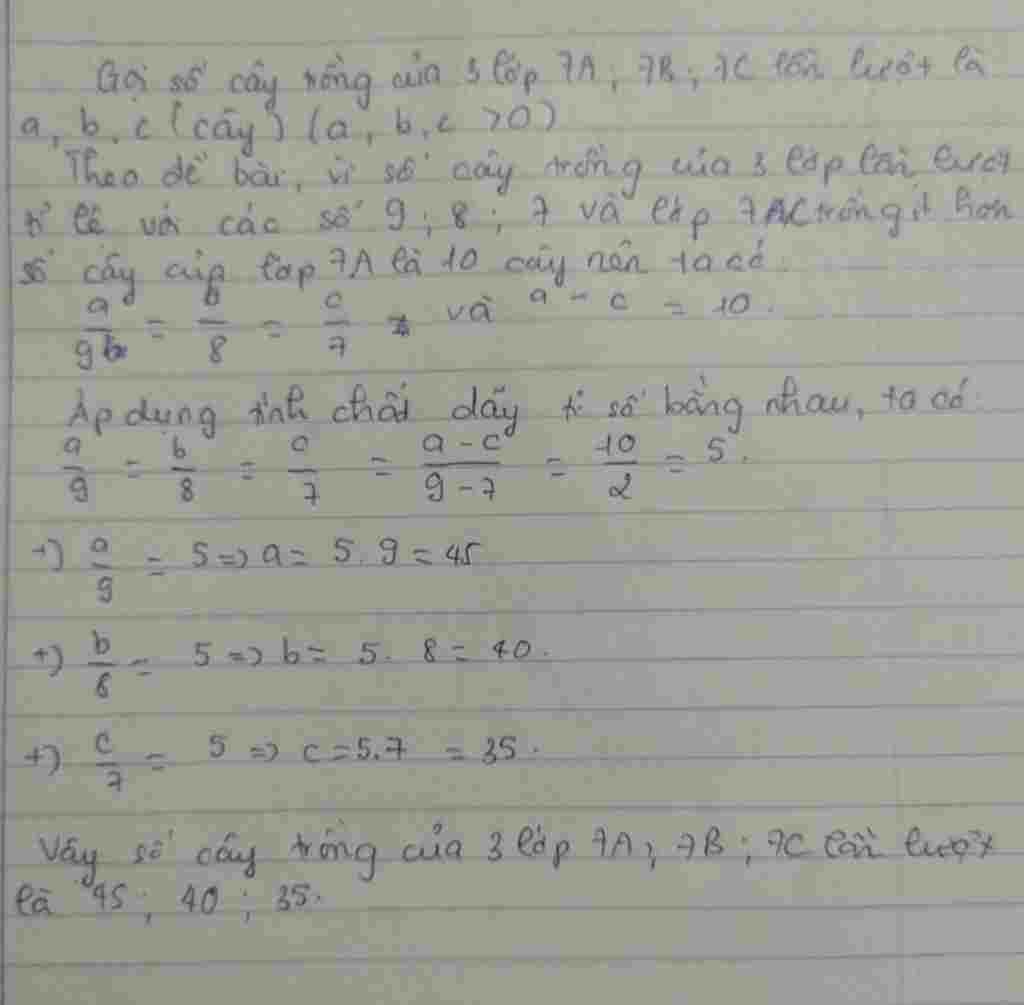 Gọi số cây trồng của 3 lớp 7A; 7B; 7C lần lượt là
a, b, c (cây) (a, b, c >0)
Theo đề bài, vì số cây trồng của 3 lớp lần lượt
tỉ lệ với các số 9; 8; 7 và lớp 7C trồng ít hơn
số cây của lớp 7A là 10 cây nên ta có
a/9 = b/8 = c/7 và a - c = 10.
Áp dụng tính chất dãy tỉ số bằng nhau, ta có
a/9 = b/8 = c/7 = a-c/9-7 = 10/2 = 5.
+) a/9 = 5 => a = 5.9 = 45
+) b/8 = 5 => b = 5.8 = 40.
+) c/7 = 5 => c = 5.7 = 35.
Vậy số cây trồng của 3 lớp 7A; 7B; 7C lần lượt
là 45; 40; 35.